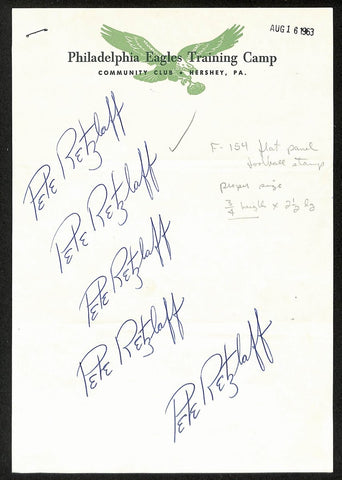 AUG 16 1963
Philadelphia Eagles Training Camp
COMMUNITY CLUB • HERSHEY, PA.
Pete Retzlaff
F-154 flat panel
football stamp
Pete Retzlaff
proper size
3/4 height x 2 1/2 lg
Pete Retzlaff
Pete Retzlaff
Pete Retzlaff